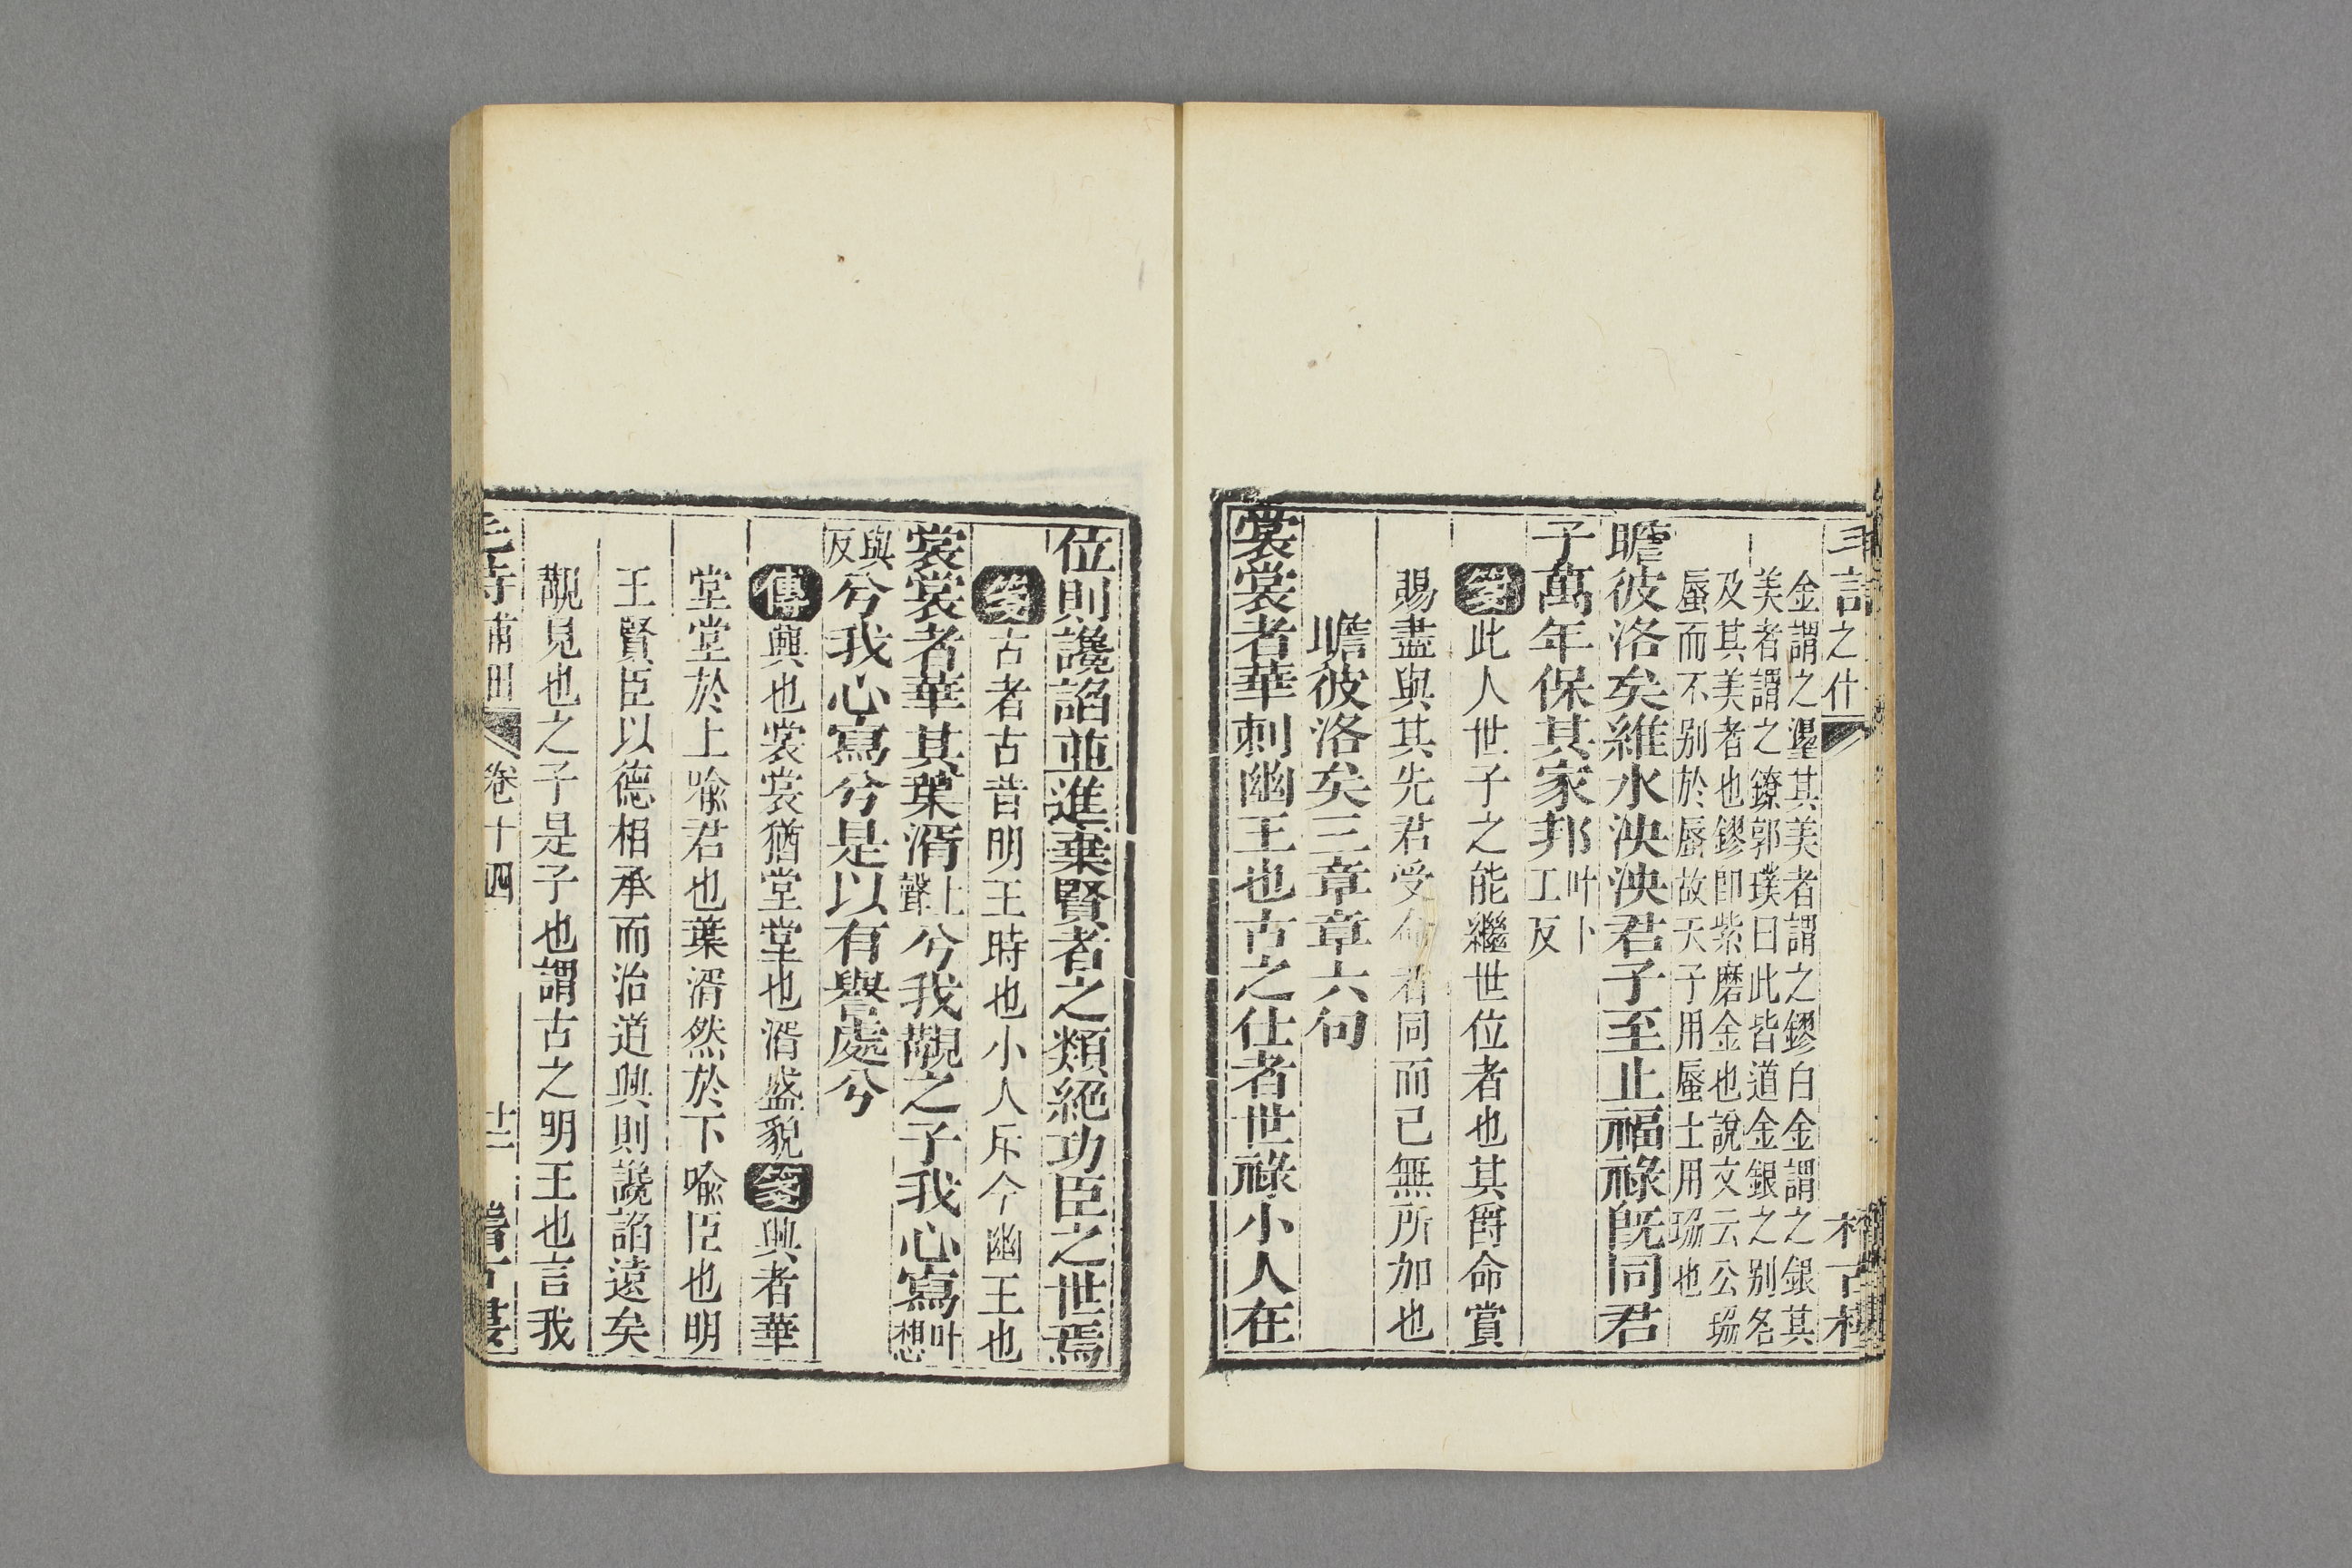 之什
金謂之璗其美者謂之鏐白金謂之銀其
美者謂之鐐郭璞曰此皆道金銀之别名
及其美者也鏐卽紫磨金也說文云公珕
蜃而不别於蜃故天子用蜃士用珕也
瞻彼洛矣維水泱泱君子至止福祿旣同君
子萬年保其家邦叶卜
工反
箋此人世子之能繼世位者也其爵命賞
賜盡與其先君受命者同而已無所加也
瞻彼洛矣三章章六句
裳裳者華刺幽王也古之仕者世祿小人在
位則讒諂並進棄賢者之類絕功臣之世焉
箋古者古昔明王時也小人斥今幽王也
裳裳者華其葉湑上聲兮我覯之子我心寫叶想
與反兮我心寫兮是以有譽處兮
傳興也裳裳猶堂堂也湑盛貌箋興者華
堂堂於上喻君也葉湑然於下喻臣也明
王賢臣以德相承而治道興則讒諂遠矣
覯見也之子是子也謂古之明王也言我
毛詩甫田 卷十四 十二